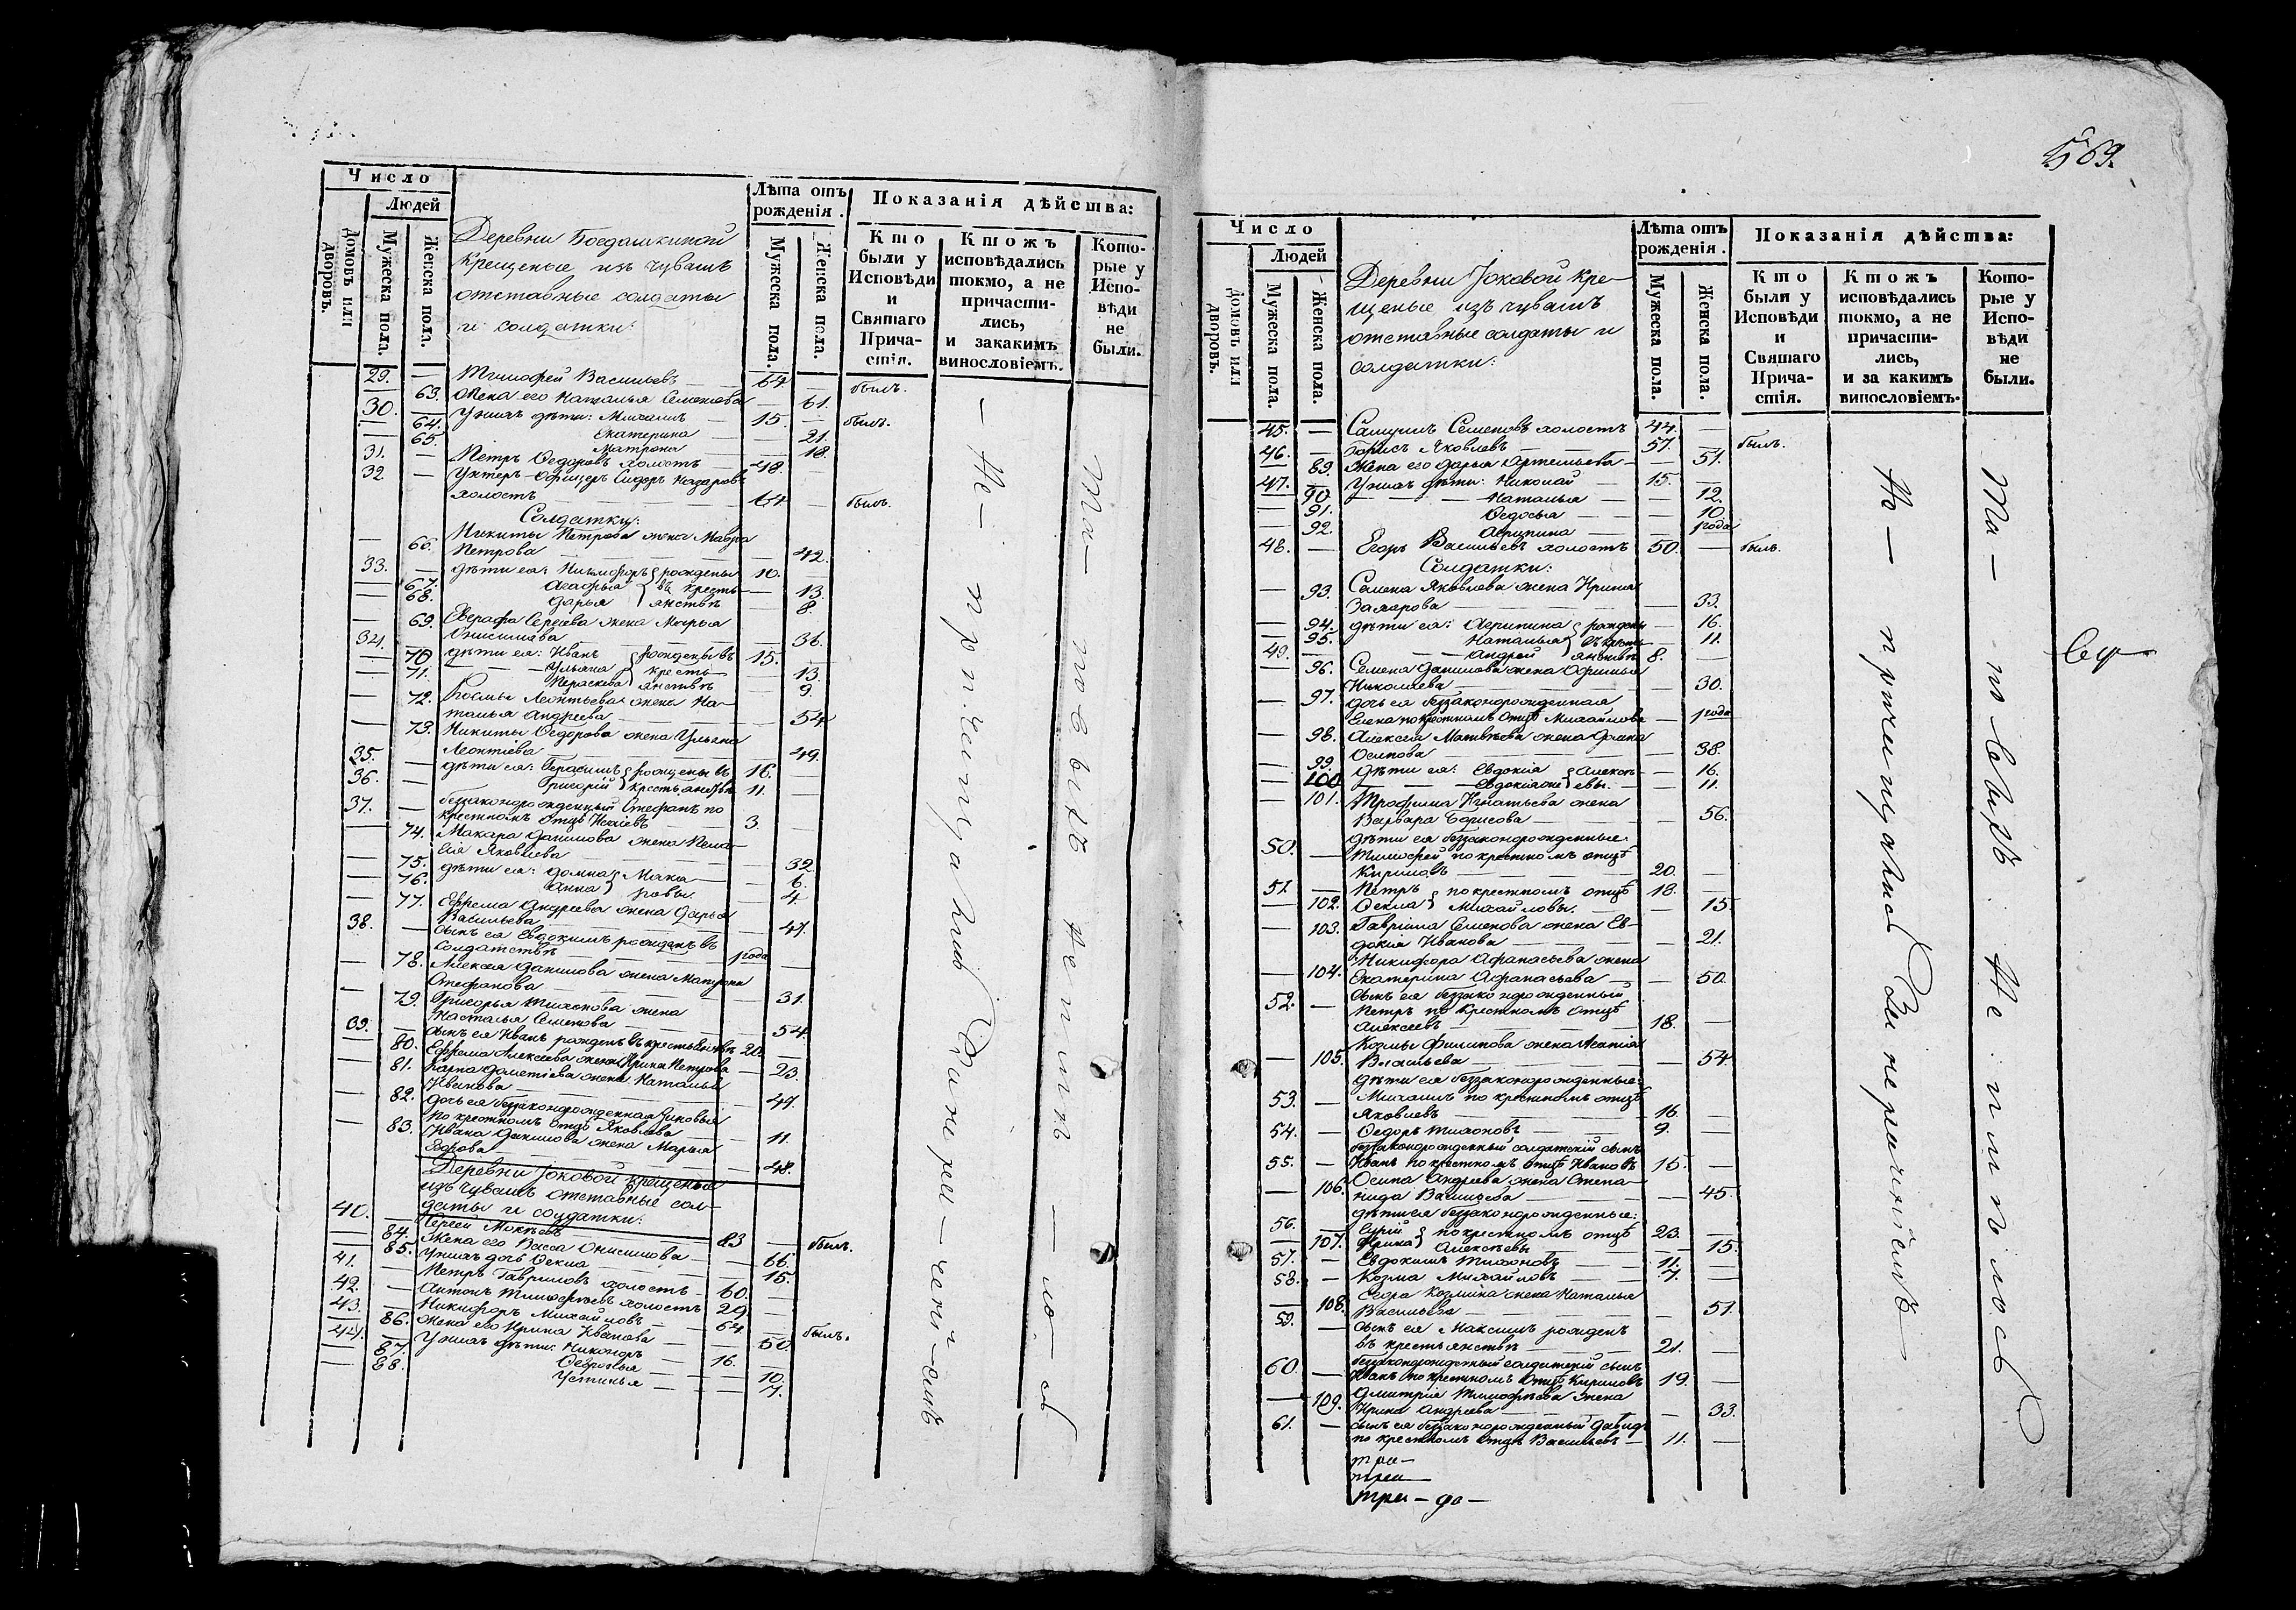 Число
Людей
Домовъ или дворовъ.
Мужеска пола.
Женска пола.
Деревни Богдашкиной
крещеные изъ чувашъ
отставные солдаты
и солдатки:
Лѣта отъ рожденія.
Мужеска пола.
Женска пола.
Показанія дѣйства:
Кто были у Исповѣди и Святаго Причастія.
Ктожъ исповѣдались токмо, а не причастились, и закакимъ винословіемъ.
Которые у Исповѣди не были.
29. — Тимофей Васильевъ — 64 — былъ.
— 63. Жена его Наталья Семенова — 61.
30. — У нихъ дѣти: Михаилъ — 15. — былъ.
— 64. Екатерина — 21.
— 65. Матрона — 18.
31. — Петръ Ѳедоровъ холостъ — 48.
32 — Унтеръ-Офицеръ Сидоръ Назаровъ
холостъ — 64 — былъ.
Солдатки:
Никиты Петрова жена Мавра
— 66. Петрова — 42.
33. — дѣти ея: Никифоръ рождены 10.
— 67. Агафья въ кресть- — 13.
— 68. Дарья янствѣ — 8.
— 69. Евграфа Сергѣева жена Марья
Онисимова — 36.
34. — дѣти ея: Иванъ рождены въ 15.
— 70 Ульяна кресть- — 13.
— 71. Параскева янствѣ — 9.
— 72. Космы Леонтьева жена На-
талья Андреева — 54
— 73. Никиты Ѳедорова жена Ульяна
Леонтіева — 49.
35. — дѣти ея: Герасимъ рождены въ 16.
36. — Григорій крестьянствѣ 11.
37. — беззаконорожденный Стефанъ по
крестномъ отцѣ Исаіевъ — 3.
— 74. Макара Данилова жена Пела-
гія Яковлева — 32
— 75. дѣти ея: Домна Мака- — 6.
— 76. Анна ровы — 4
— 77. Ефрема Андреева жена Дарья
Васильева — 47.
38. — сынъ ея Евдокимъ рожденъ въ
солдатствѣ — 1 года
— 78. Алексѣя Данилова жена Матрона
Стефанова — 31.
— 79. Григорья Тихонова жена
Наталья Семенова — 54.
39. — сынъ ея Иванъ рожденъ въ крестьянствѣ 20.
— 80. Ефрема Алексеева жена Ирина Петрова — 23.
— 81. Карпа Дометіева жена Наталья
Иванова — 47.
— 82. дочь ея беззаконорожденная Зиновья
по крестномъ отцѣ Яковлева — 11.
— 83. Ивана Данилова жена Марья
Егорова — 48.
Деревни Іоковой крещеные
изъ чувашъ отставные сол-
даты и солдатки:
40. — Сергей Мокѣевъ — 83 — былъ.
— 84. Жена его Васса Онисимова — 66.
— 85. У нихъ дочь Ѳекла — 15.
41. — Петръ Гавриловъ холостъ — 60.
42. — Антонъ Тимофеевъ холостъ 29.
43. — Никифоръ Михайловъ — 64. — былъ.
— 86. Жена его Ирина Иванова — 50.
44. — У нихъ дѣти: Никоноръ — 16.
— 87. Ѳедосья — 10.
— 88. Устинья — 7.
Не — причащались
За нерачені- емъ
То — й вѣрѣ не пишло- сь
569.
Число
Людей
Домовъ или дворовъ.
Мужеска пола.
Женска пола.
Деревни Іоковой кре-
щеные изъ чувашъ
отставные солдаты и
солдатки:
Лѣта отъ рожденія.
Мужеска пола.
Женска пола.
Показанія дѣйства:
Кто были у Исповѣди и Святаго Причастія.
Ктожъ исповѣдались токмо, а не причастились, и за какимъ винословіемъ.
Которые у Исповѣди не были.
45. — Самуилъ Семеновъ холостъ 44. —
46. — Борисъ Яковлевъ — 57. — былъ.
— 89. Жена его Дарья Артемьева — 51.
47. — У нихъ дѣти: Николай — 15.
— 90. Наталья — 12.
— 91. Ѳедосья — 10.
— 92. Агрипина — 1 года
48. — Егоръ Васильевъ холостъ 50. — былъ.
Солдатки:
— 93. Семена Яковлева жена Ирина
Захарова — 33.
— 94. дѣти ея: Агрипина рождены — 16.
— 95. Наталья въ кресть- — 11.
49. — Андрей янствѣ 8.
— 96. Семена Данилова жена Офимья
Николаева — 30.
— 97. дочь ея беззаконорожденная
Елена по крестномъ отцѣ Михайлова — 1 года
— 98. Алексея Матвѣева жена Домна
Осипова — 38.
— 99. дѣти ея: Евдокія Алексѣ- — 16.
— 100 Евдокія же евы. — 11.
— 101. Трофима Игнатьева жена
Варвара Борисова — 56.
дѣти ея беззаконорожденные:
50. — Тимофей по крестномъ отцѣ
Кириловъ — 20.
51. — Петръ по крестномъ отцѣ 18.
— 102. Ѳекла Михайловы. — 15.
— 103. Гавріила Семенова жена Ев-
докія Иванова — 21.
Никифора Афанасьева жена
— 104. Екатерина Афанасьева — 50.
52. — сынъ ея беззаконорожденный
Петръ по крестномъ отцѣ
Алексеевъ — 18.
Козмы Филипова жена Агафія
— 105. Власьева — 54.
дѣти ея беззаконорожденные:
53. — Михаилъ по крестномъ отцѣ
Яковлевъ — 16.
54. — Ѳедоръ Тихоновъ — 9.
беззаконорожденный солдатскій сынъ
55. — Иванъ по крестномъ отцѣ Ивановъ 15.
— 106. Осипа Андреева жена Степа-
нида Васильева — 45.
дѣти ея беззаконорожденные:
56. — Гурій по крестномъ отцѣ 23.
— 107. Ирина Алексѣевы — 15.
57. — Евдокимъ Тихоновъ — 11.
58. — Козма Михайловъ — 7.
Егора Козмина жена Наталья
— 108. Васильева — 51.
59. — сынъ ея Максимъ рожденъ
въ крестьянствѣ — 21.
беззаконорожденный солдатскій сынъ
60. — Иванъ по крестномъ отцѣ Кириловъ 19.
— 109. Дмитрія Тимофѣева жена
Ирина Андреева — 33.
61. — сынъ ея беззаконорожденный Давидъ
по крестномъ отцѣ Васильевъ — 11.
три —
три —
три — до —
Не — причащались
За нерачніемъ